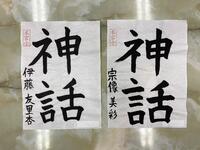 神話
伊藤友里杏
神話
宗像美彩